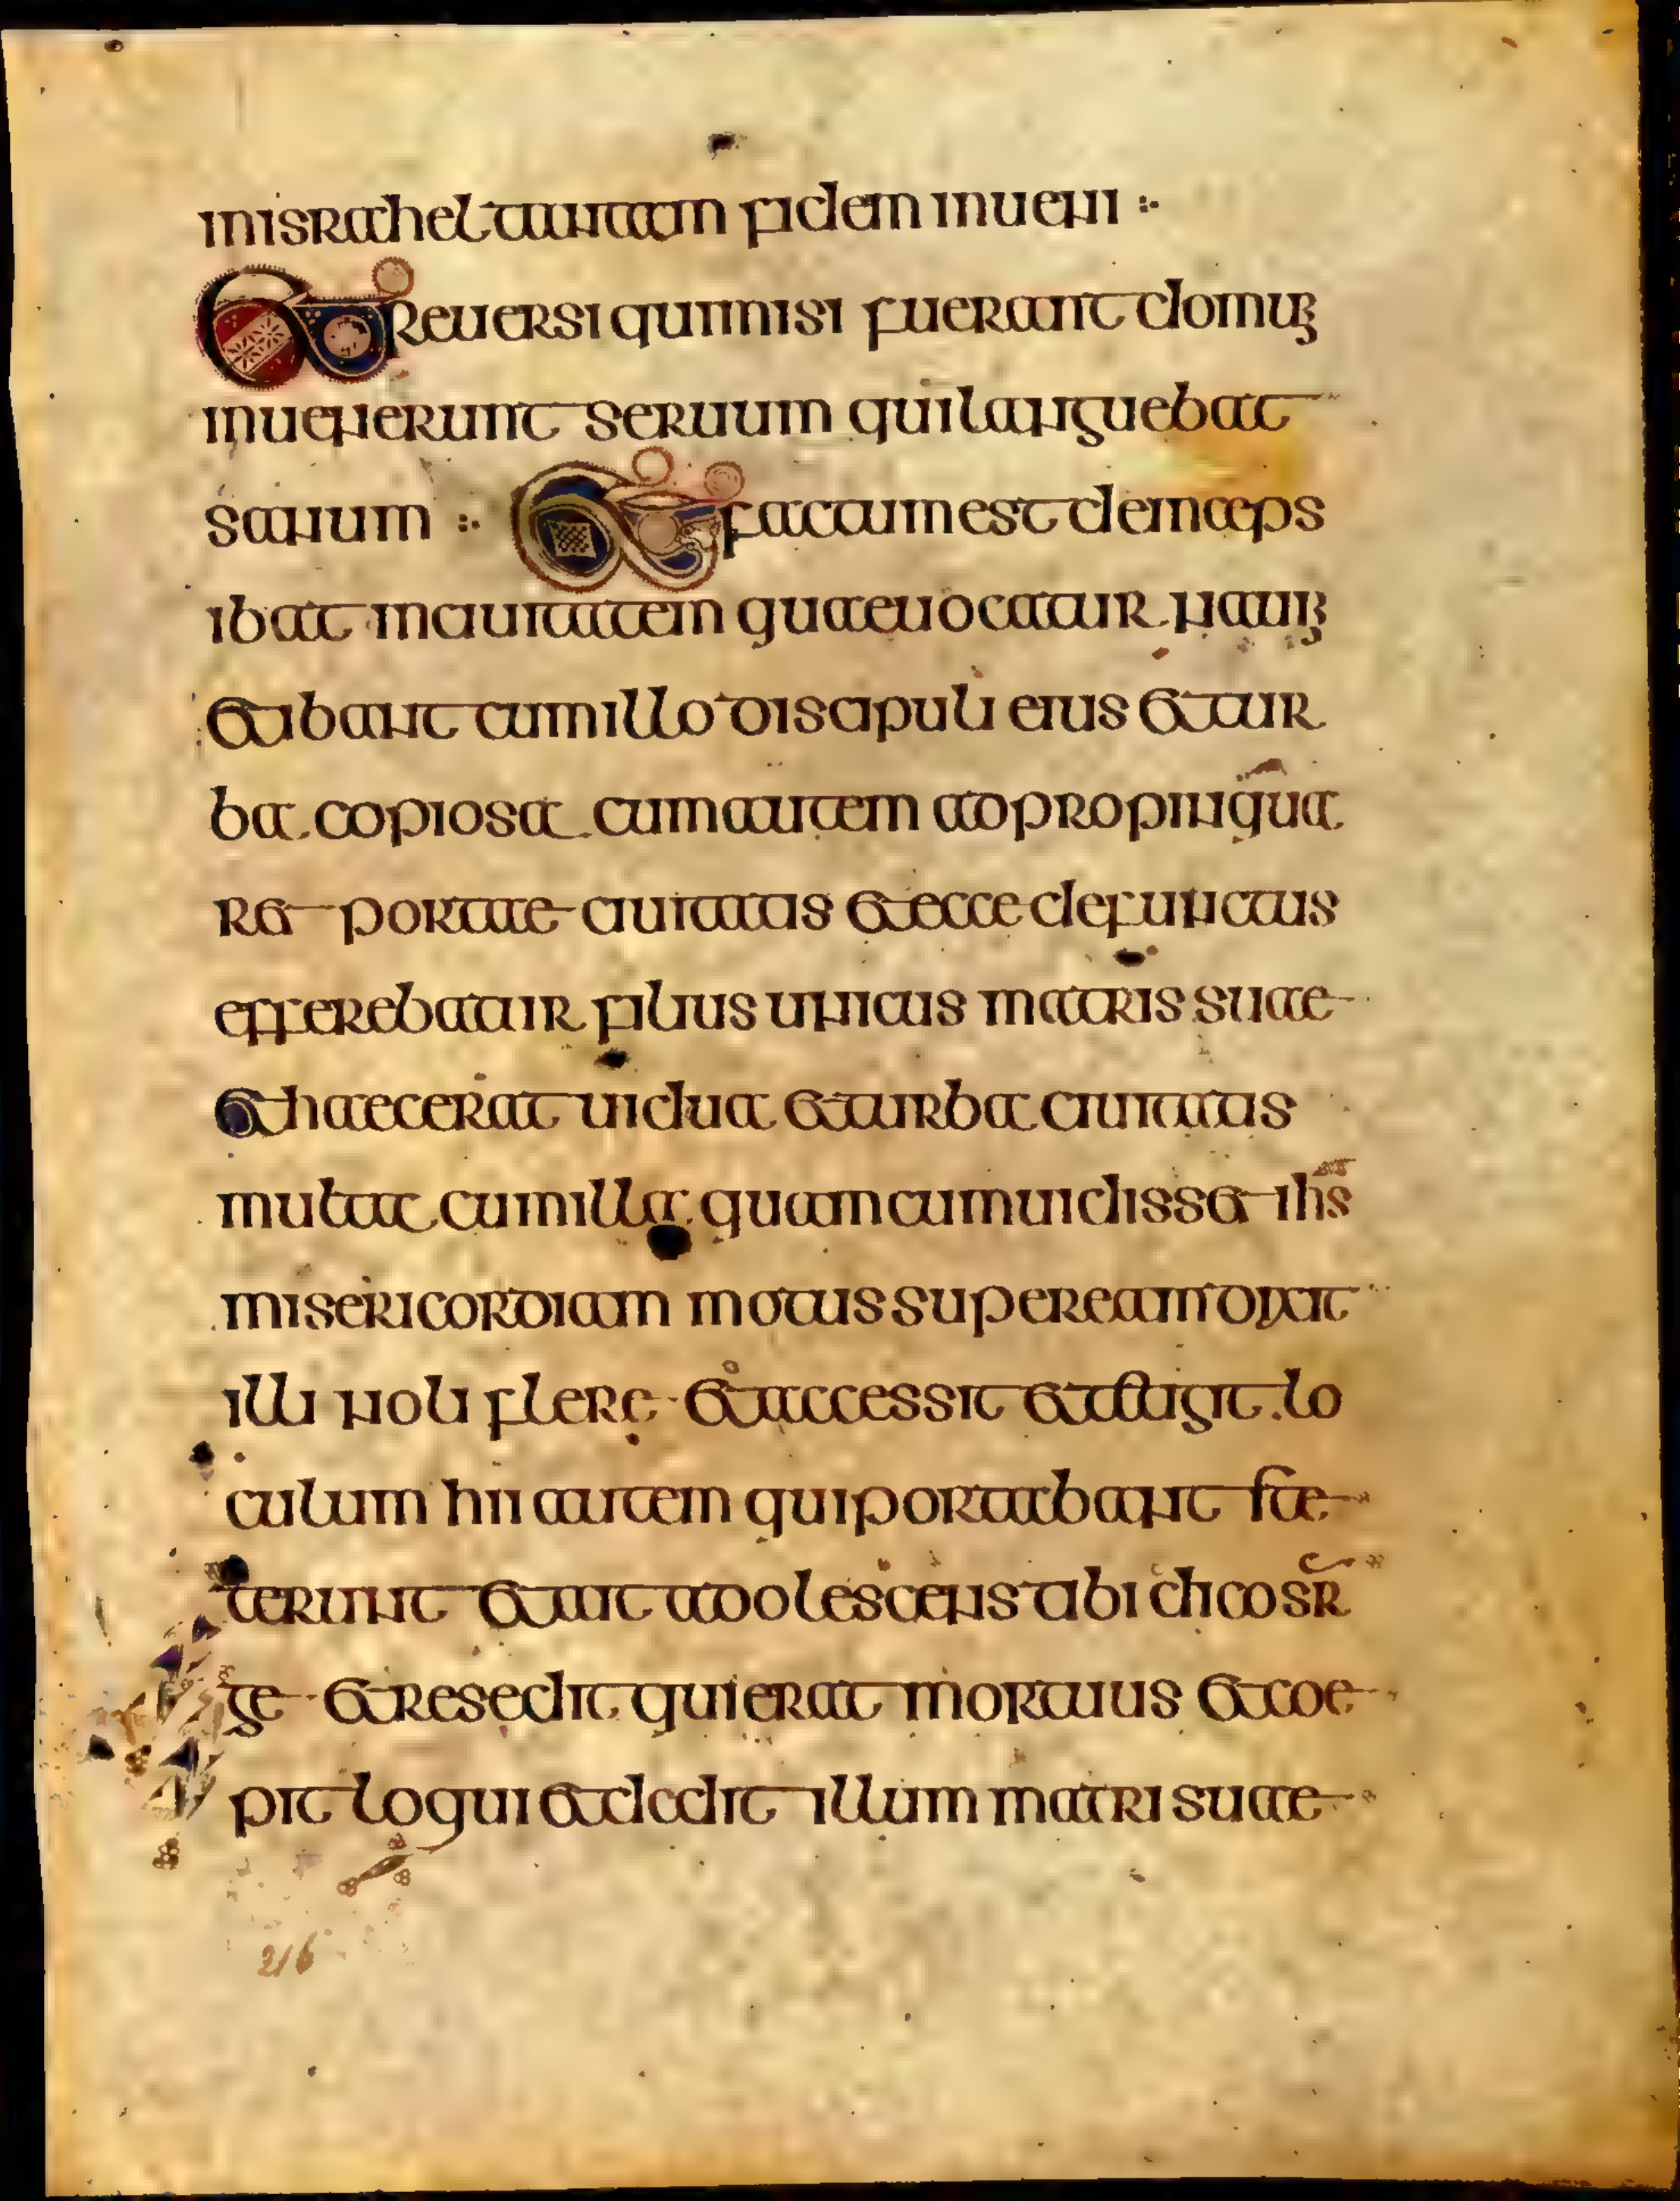 in israhel tantam fidem inueni :·
Et reuersi qui missi fuerant domuꝫ
inuenerunt seruum qui languebat
sanum :· Et factum est deinceps
ibat in ciuitatem quae uocatur nauꝫ
Et ibant cum illo discipuli eius et tur
ba copiosa cum autem adpropinqua
ret portae ciuitatis et ecce defunctus
efferebatur filius unicus matris suae
Et haec erat uidua et turba ciuitatis
multa cum illa quam cum uidisset ihs̄
misericordiam motus super eam dixit
illi noli flere et accessit et tetigit lo
culum hii autem qui portabant ste
terunt et ait adolescens tibi dico sr̄
ge et resedit qui erat mortuus et coe
pit loqui et dedit illum matri suae
216